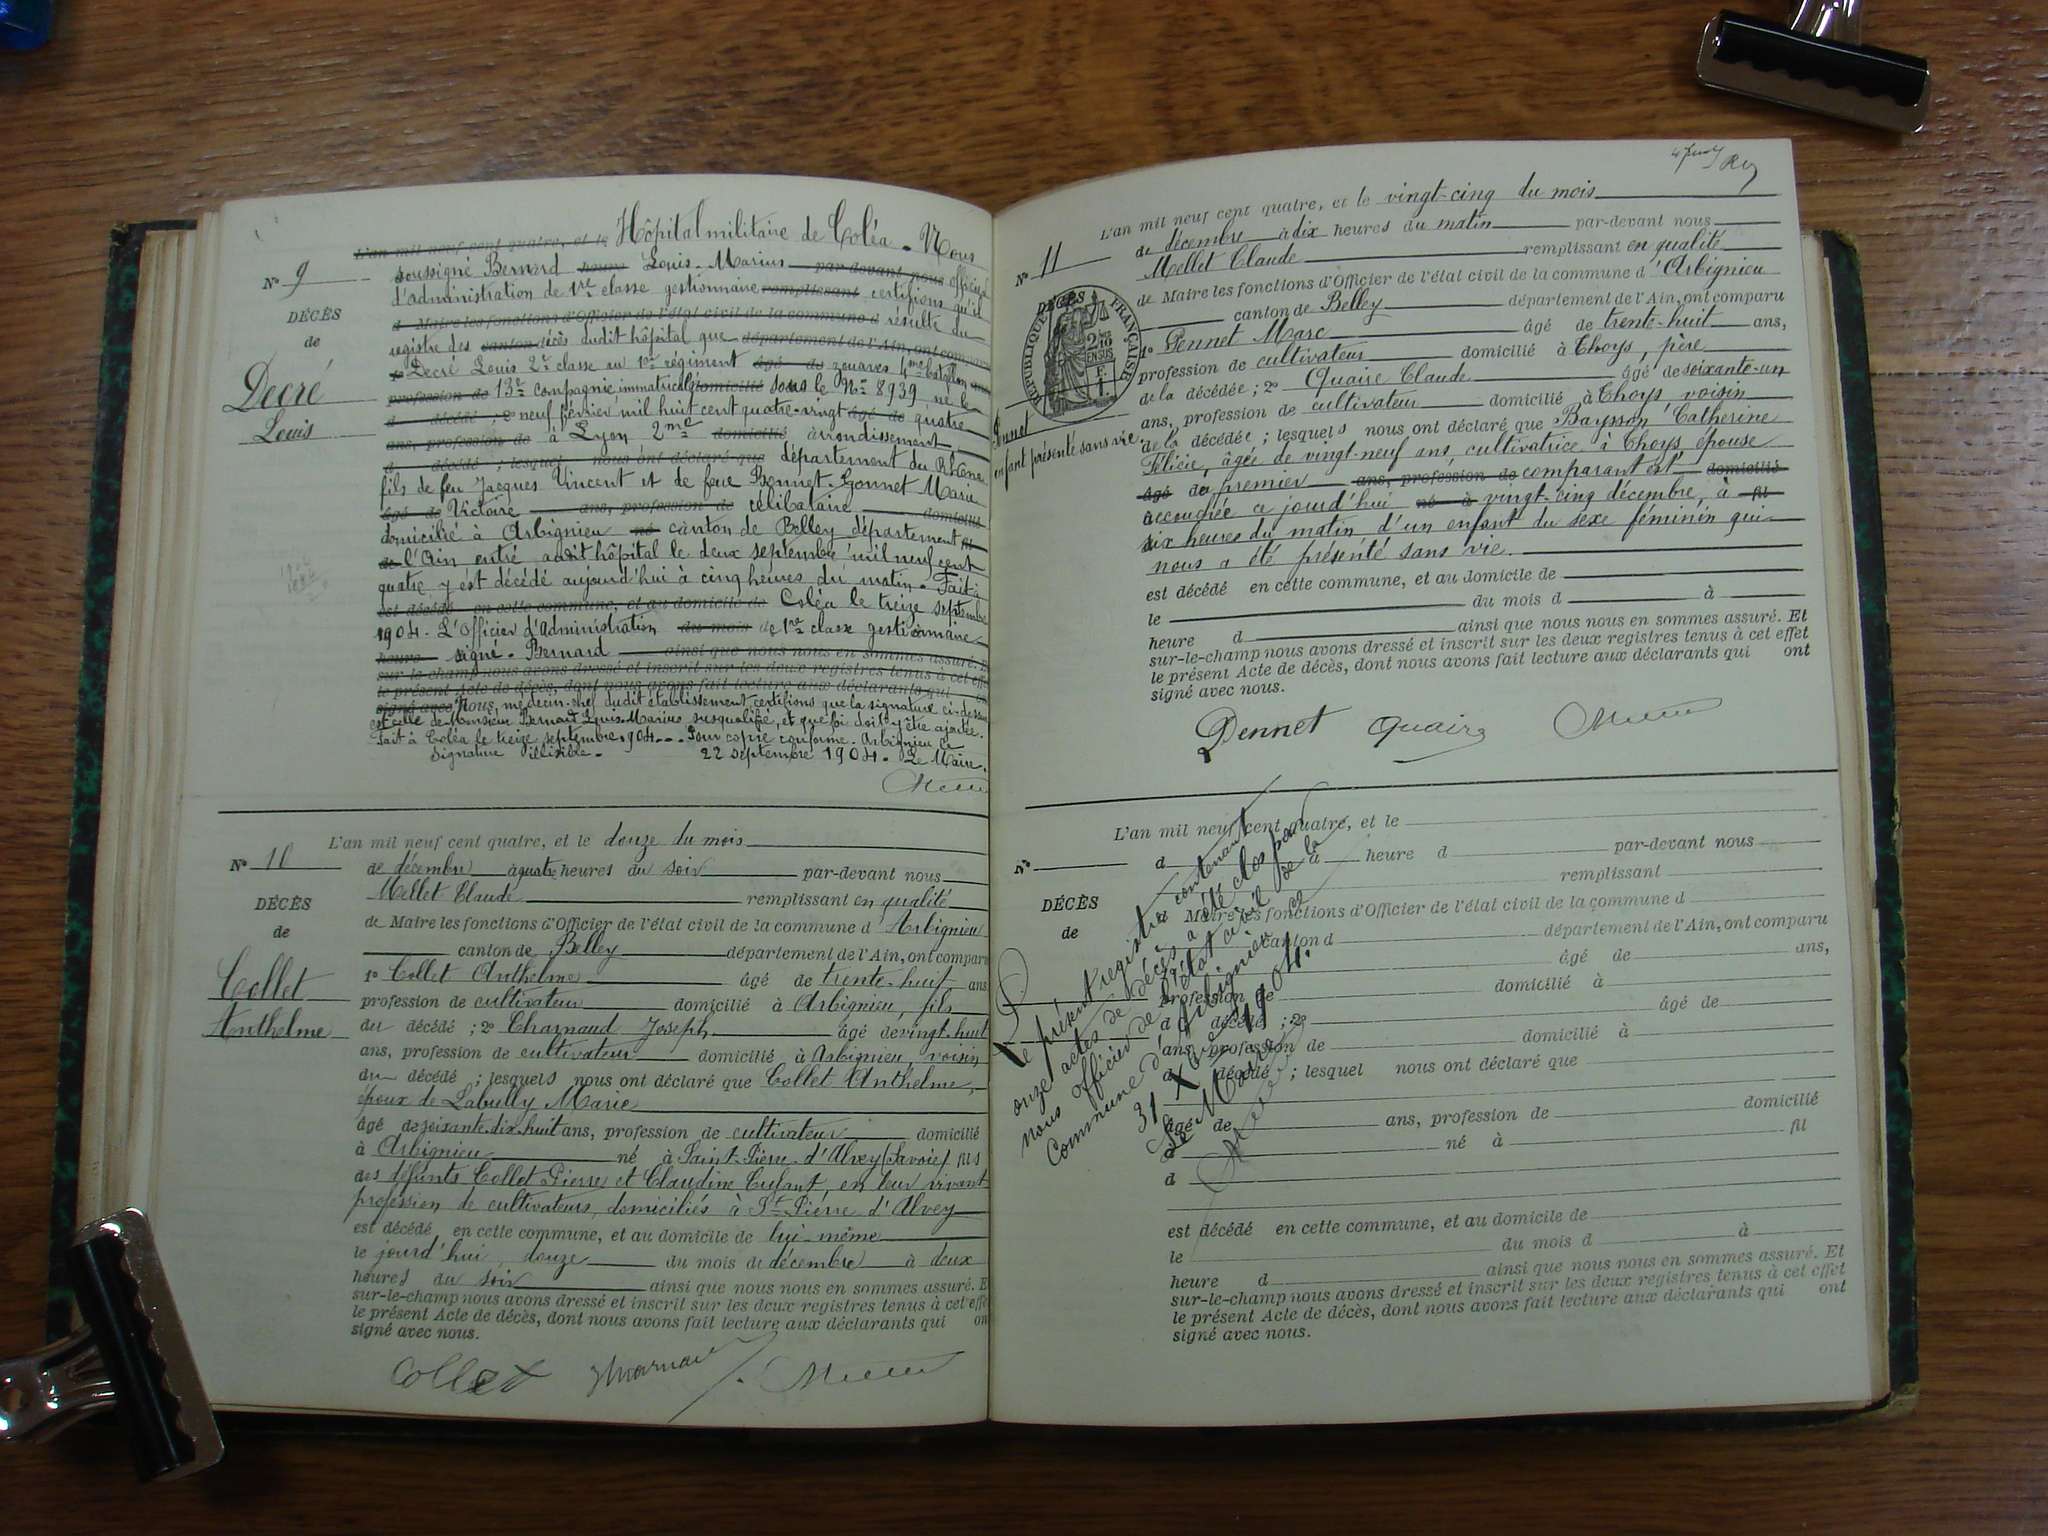 L'an mil neuf cent quatre, et le Hôpital militaire de Coléa. Nous
N° 9
soussigné Bernard heure Louis-Marius par-devant nous officier
d'administration de 1re classe gestionnaire remplissant certifions qu'il
DÉCÈS
d Maire les fonctions d'Officier de l'état civil de la commune d résulte du
de
registre des canton décès dudit hôpital que département de l'Ain, ont comparu
1o Decré Louis 2e classe au 1er régiment âgé de zouaves 4me bataillon ans
Decré
profession de 13e compagnie immatriculé domicilié sous le No 8939 né le
Louis
d décédé ; 2o neuf février mil huit cent quatre-vingt âgé de quatre
ans, profession de à Lyon 2me domicilié arrondissement
d décédé ; lesquel nous ont déclaré que département du Rhône
fils de feu Jacques Vincent et de feue Bonnet-Gonnet Marie
âgé de Victoire ans, profession de célibataire domicilié
domicilié à Arbignieu né canton de Belley département fil
de l'Ain entré audit hôpital le deux septembre mil neuf cent
quatre y est décédé aujourd'hui à cinq heures du matin. Fait à
est décédé en cette commune, et au domicile de Coléa le treize septembre
1904. L'Officier d'Administration du mois de 1re classe gestionnaire
heure signé. Bernard ainsi que nous nous en sommes assuré. E
sur-le-champ nous avons dressé et inscrit sur les deux registres tenus à cet effe
le présent Acte de décès, dont nous avons fait lecture aux déclarants qui on
signé avec Nous, médecin-chef dudit établissement certifions que la signature ci-dessus
est celle de Monsieur Bernard Louis-Marius susqualifié, et que foi doit y être ajoutée.
Fait à Coléa le treize septembre 1904. Pour copie conforme. Arbignieu ce
Signature illisible. 22 septembre 1904. Le Maire.
L'an mil neuf cent quatre, et le douze du mois
N° 10
de décembre à quatre heures du soir par-devant nous
Mellet Claude remplissant en qualité
DÉCÈS
de Maire les fonctions d'Officier de l'état civil de la commune d'Arbignieu
de
canton de Belley département de l'Ain, ont comparu
Collet
1o Collet Anthelme âgé de trente-huit ans
profession de cultivateur domicilié à Arbignieu, fils
Anthelme
du décédé ; 2o Charnaud Joseph âgé de vingt-huit
ans, profession de cultivateur domicilié à Arbignieu, voisin
du décédé ; lesquels nous ont déclaré que Collet Anthelme,
époux de Labully Marie
âgé de soixante-dix-huit ans, profession de cultivateur domicilié
à Arbignieu né à Saint-Pierre-d'Alvey (Savoie) fils
des défunts Collet Pierre et Claudine Cusant, en leur vivant
profession de cultivateurs, domiciliés à St Pierre d'Alvey
est décédé en cette commune, et au domicile de lui-même
le jourd'hui, douze du mois de décembre à deux
heures du soir ainsi que nous nous en sommes assuré. E
sur-le-champ nous avons dressé et inscrit sur les deux registres tenus à cet effe
le présent Acte de décès, dont nous avons fait lecture aux déclarants qui on
signé avec nous.
Collet Charnaud
Rey
L'an mil neuf cent quatre, et le vingt-cinq du mois
N° 11
de décembre à dix heures du matin par-devant nous
Mellet Claude remplissant en qualité
de Maire les fonctions d'Officier de l'état civil de la commune d'Arbignieu
DÉCÈS
RÉPUBLIQUE FRANÇAISE
canton de Belley département de l'Ain, ont comparu
1o Pennet Marc âgé de trente-huit ans,
profession de cultivateur domicilié à Thoys, père
de la décédée ; 2o Quaire Claude âgé de soixante-un
ans, profession de cultivateur domicilié à Thoys, voisin
enfant présenté sans vie
de la décédée ; lesquels nous ont déclaré que Baysson Catherine
Félicie, âgée de vingt-neuf ans, cultivatrice à Thoys épouse
âgé du premier ans, profession de comparant est domicilié
accouchée ce jourd'hui né à vingt-cinq décembre, à fil
six heures du matin d'un enfant du sexe féminin qui
nous a été présenté sans vie.
est décédé en cette commune, et au domicile de
le du mois d à
heure d ainsi que nous nous en sommes assuré. Et
sur-le-champ nous avons dressé et inscrit sur les deux registres tenus à cet effet
le présent Acte de décès, dont nous avons fait lecture aux déclarants qui ont
signé avec nous.
Pennet Quaire
L'an mil neuf cent quatre, et le
N° d à heure d par-devant nous
remplissant
DÉCÈS
Maire les fonctions d'Officier de l'état civil de la commune d
de
canton d département de l'Ain, ont comparu
âgé de ans,
profession de domicilié à
d décédé ; 2o âgé de
ans, profession de domicilié à
d décédé ; lesquel nous ont déclaré que
âgé de ans, profession de domicilié
à né à fil
d
est décédé en cette commune, et au domicile de
le du mois d à
heure d ainsi que nous nous en sommes assuré. Et
sur-le-champ nous avons dressé et inscrit sur les deux registres tenus à cet effet
le présent Acte de décès, dont nous avons fait lecture aux déclarants qui ont
signé avec nous.
Le présent registre contenant
onze actes de décès a été clos par
nous officier de l'état civil de la
Commune d'Arbignieu ce
31 Xbre 1904.
Le Maire